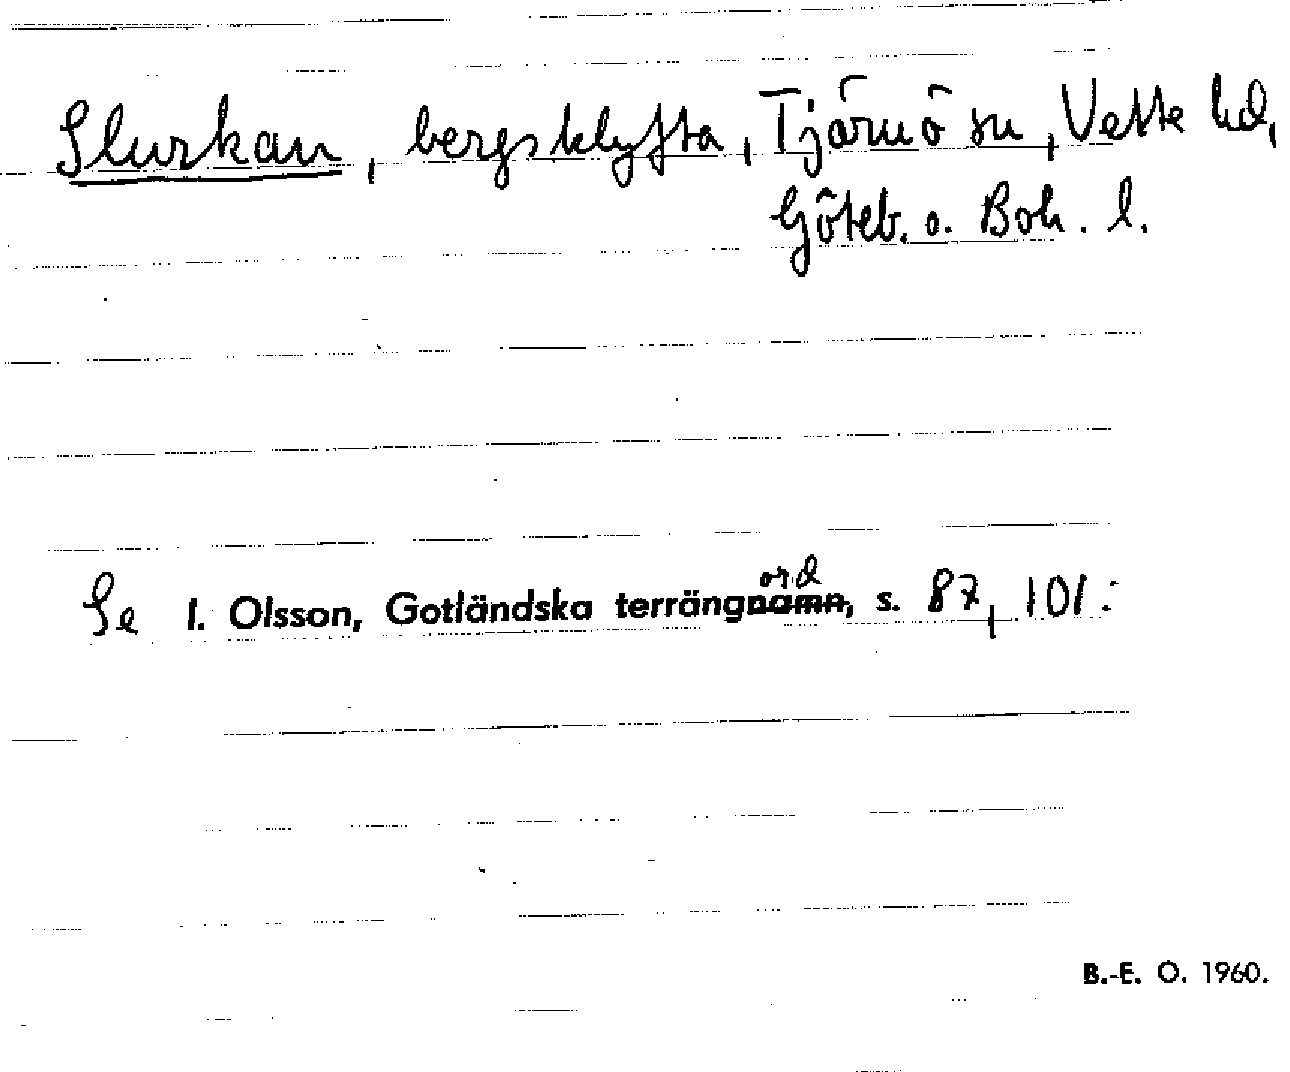 Slurkan, bergsklyfta, Tjärnö sn, Vette hd,
Göteb. o. Boh. l.
Se I. Olsson, Gotländska terrängnamn, ord s. 87, 101.
B.-E. O. 1960.